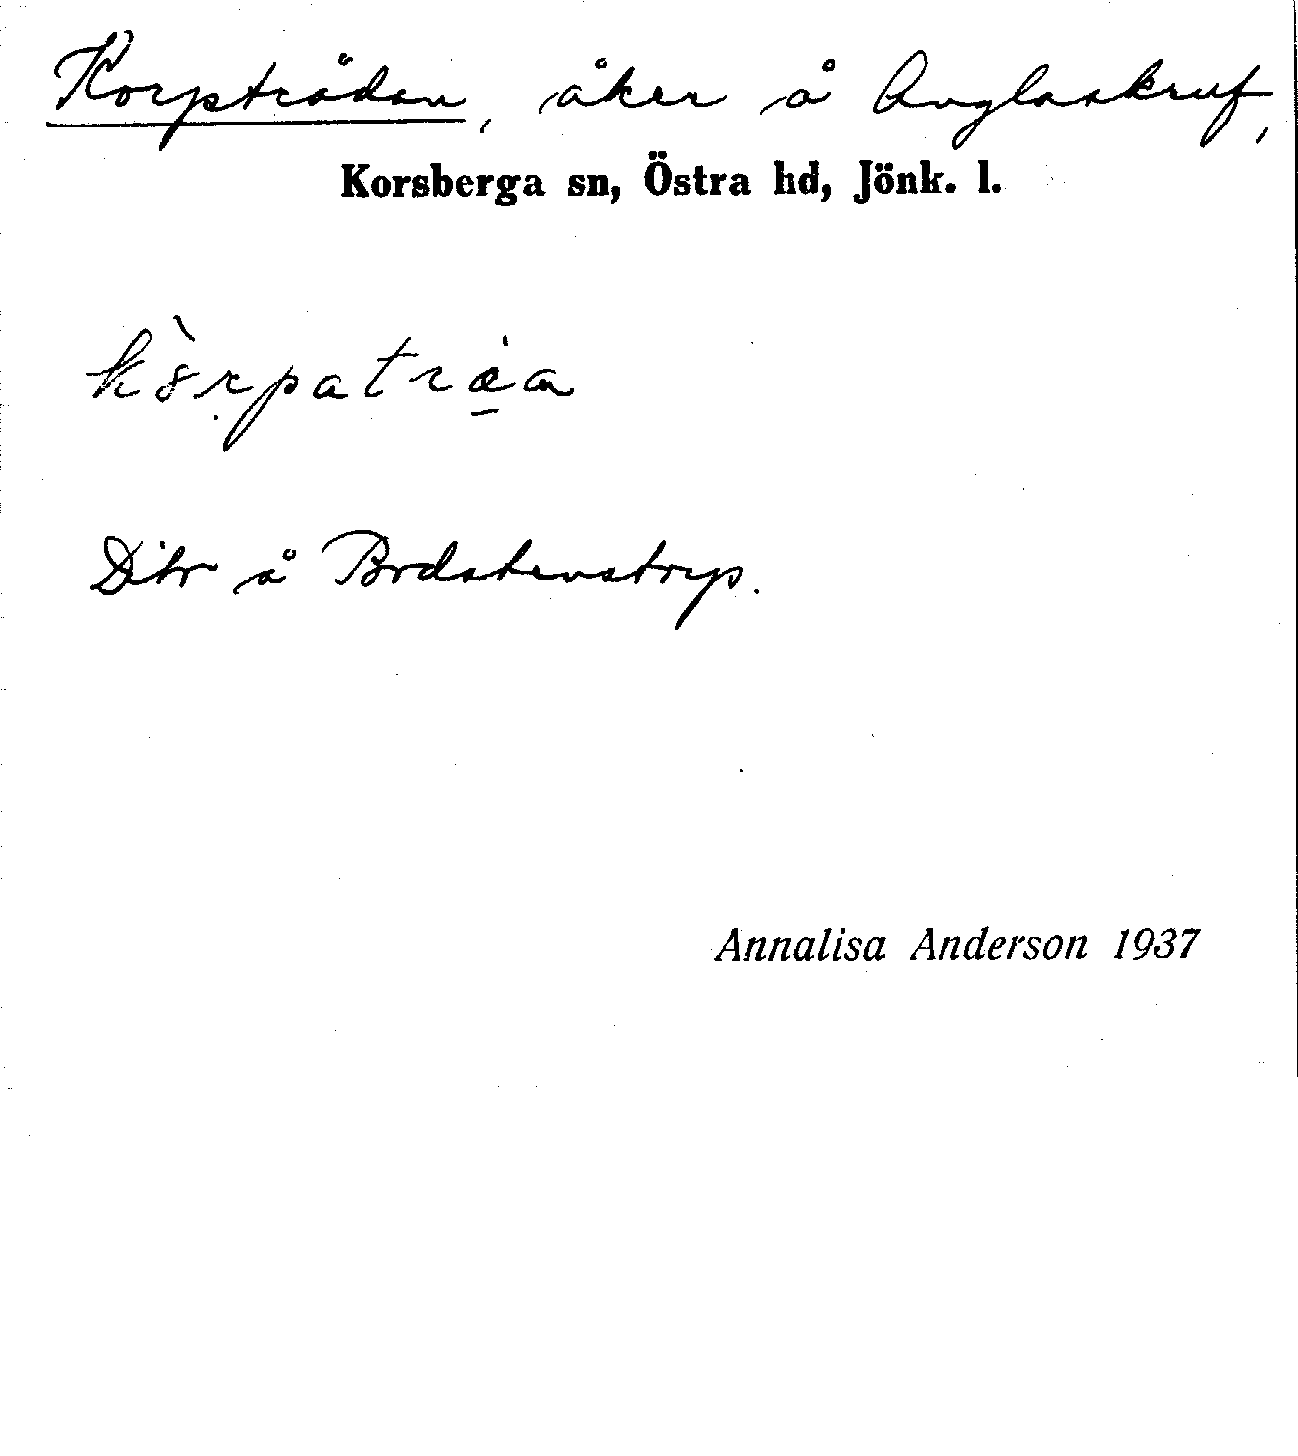 Korpträdan, åker å Anglaskruf,
Korsberga sn, Östra hd, Jönk. l.
Dito å Brdstenstorp.
Annalisa Anderson 1937